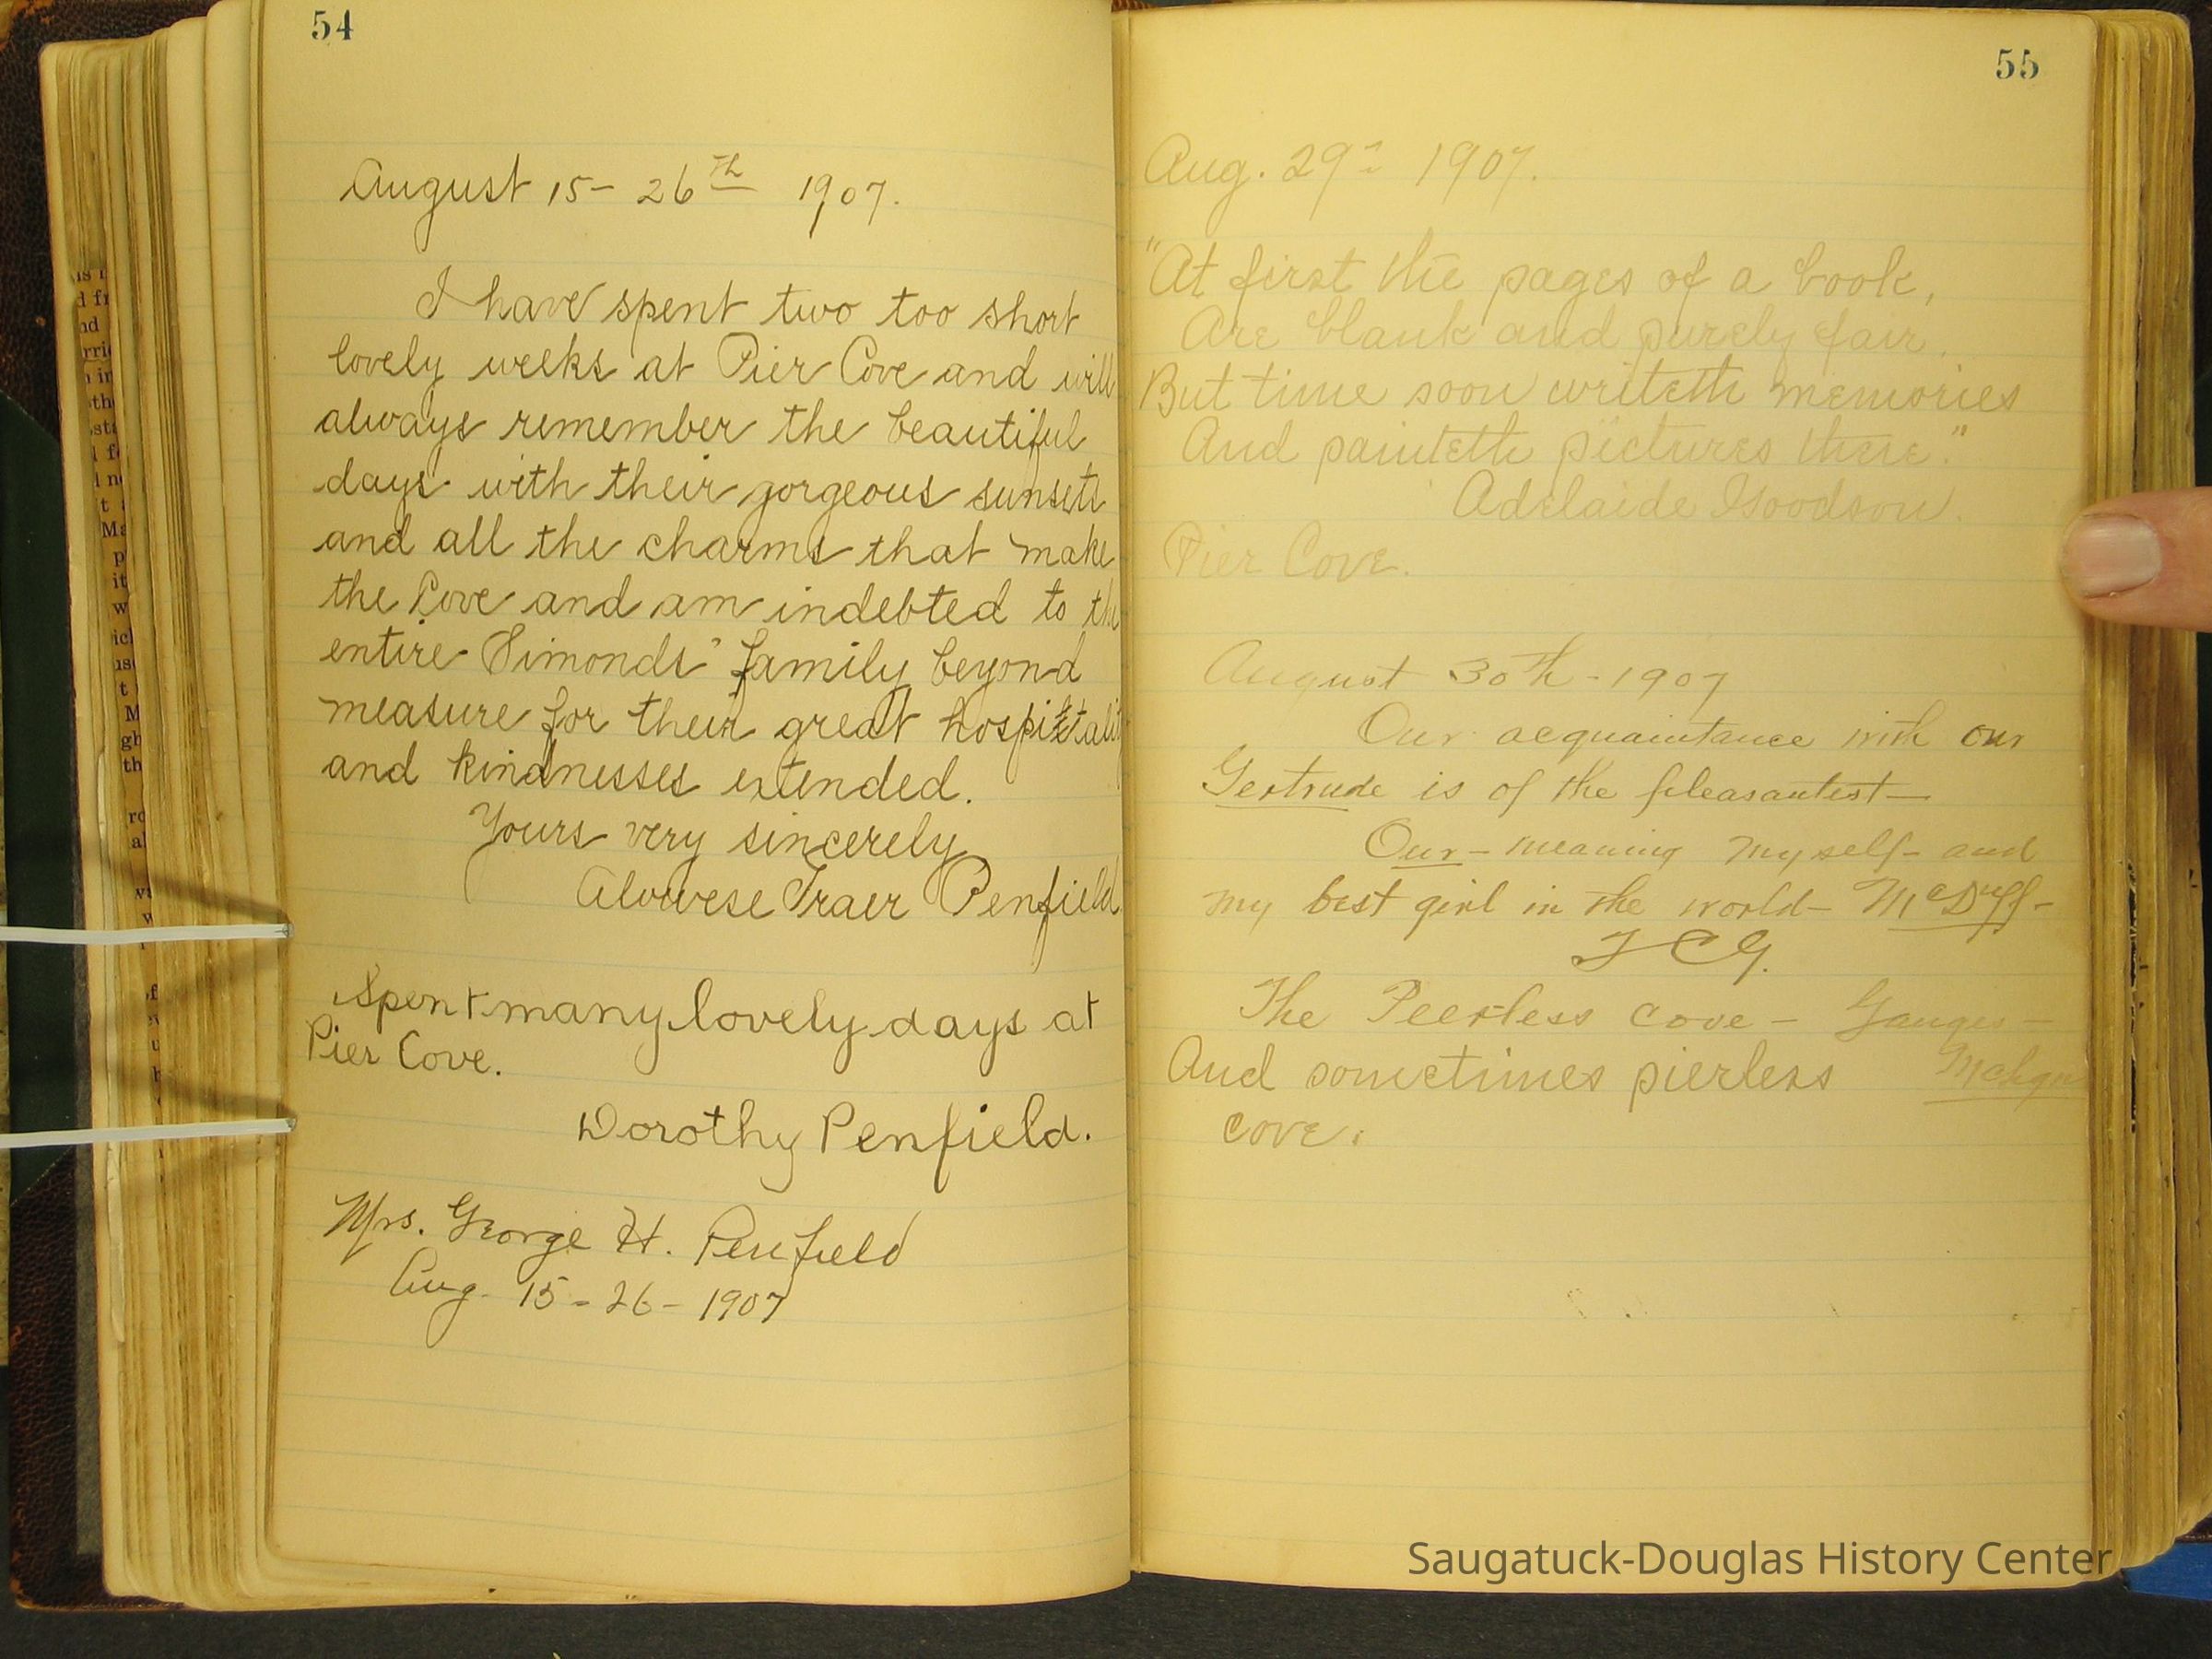 54
August 15 - 26th 1907.
I have spent two too short
lovely weeks at Pier Cove and will
always remember the beautiful
days with their gorgeous sunsets
and all the charms that make
the Cove and am indebted to the
entire Simonds' family beyond
measure for their great hospitality
and kindnesses extended.
Yours very sincerely
Alowese Traer Penfield.
Spent many lovely days at
Pier Cove.
Dorothy Penfield.
Mrs. George H. Penfield
Aug. 15 - 26 - 1907
55
Aug. 29th 1907.
"At first the pages of a book,
Are blank and purely fair,
But time soon writeth memories
And painteth pictures there."
Adelaide Goodson.
Pier Cove.
August 30th - 1907
Our acquaintance with our
Gertrude is of the pleasantest —
Our - meaning myself - and
my best girl in the world - McDuff -
The Peerless Cove - Ganges -
Mchgn
And sometimes pierless
cove.
Saugatuck-Douglas History Center